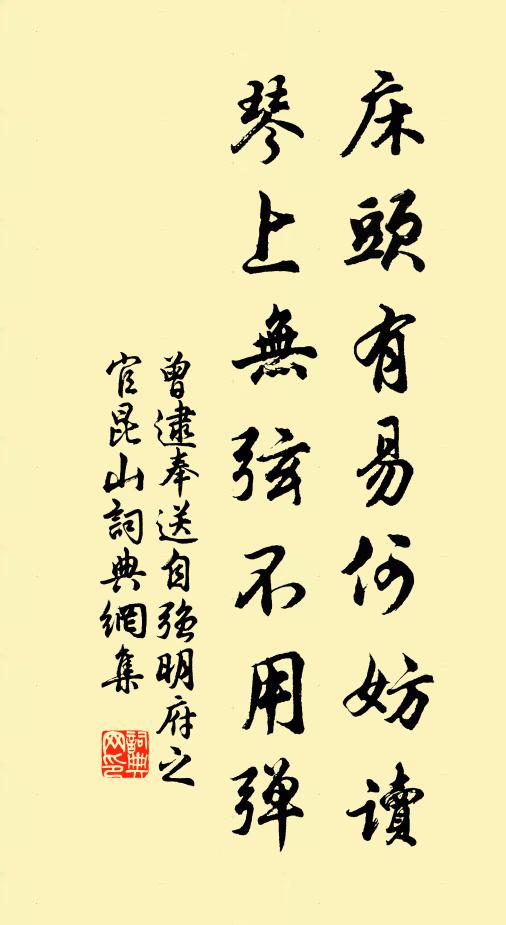 床頭有易何妨讀
琴上無弦不用弹
曾逮奉送自强明府之
官昆山詞典網集
詞典
网印